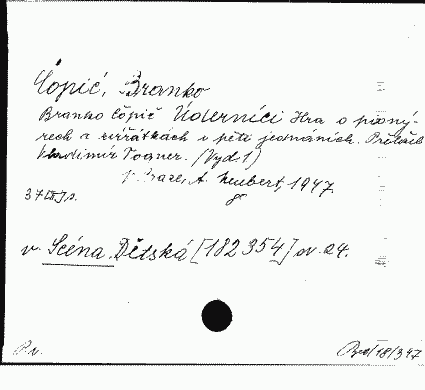 Ćopić, Branko
Branko Čopič Úderníci Hra o pioný-
rech a zvířátkách v pěti jednáních. Přeložil
Vladimír Togner. (Vyd. 1)
V Praze, A. Neubert, 1947.
8°
37 s.
v. Scéna Dětská [182354] sv. 24.
P. v.